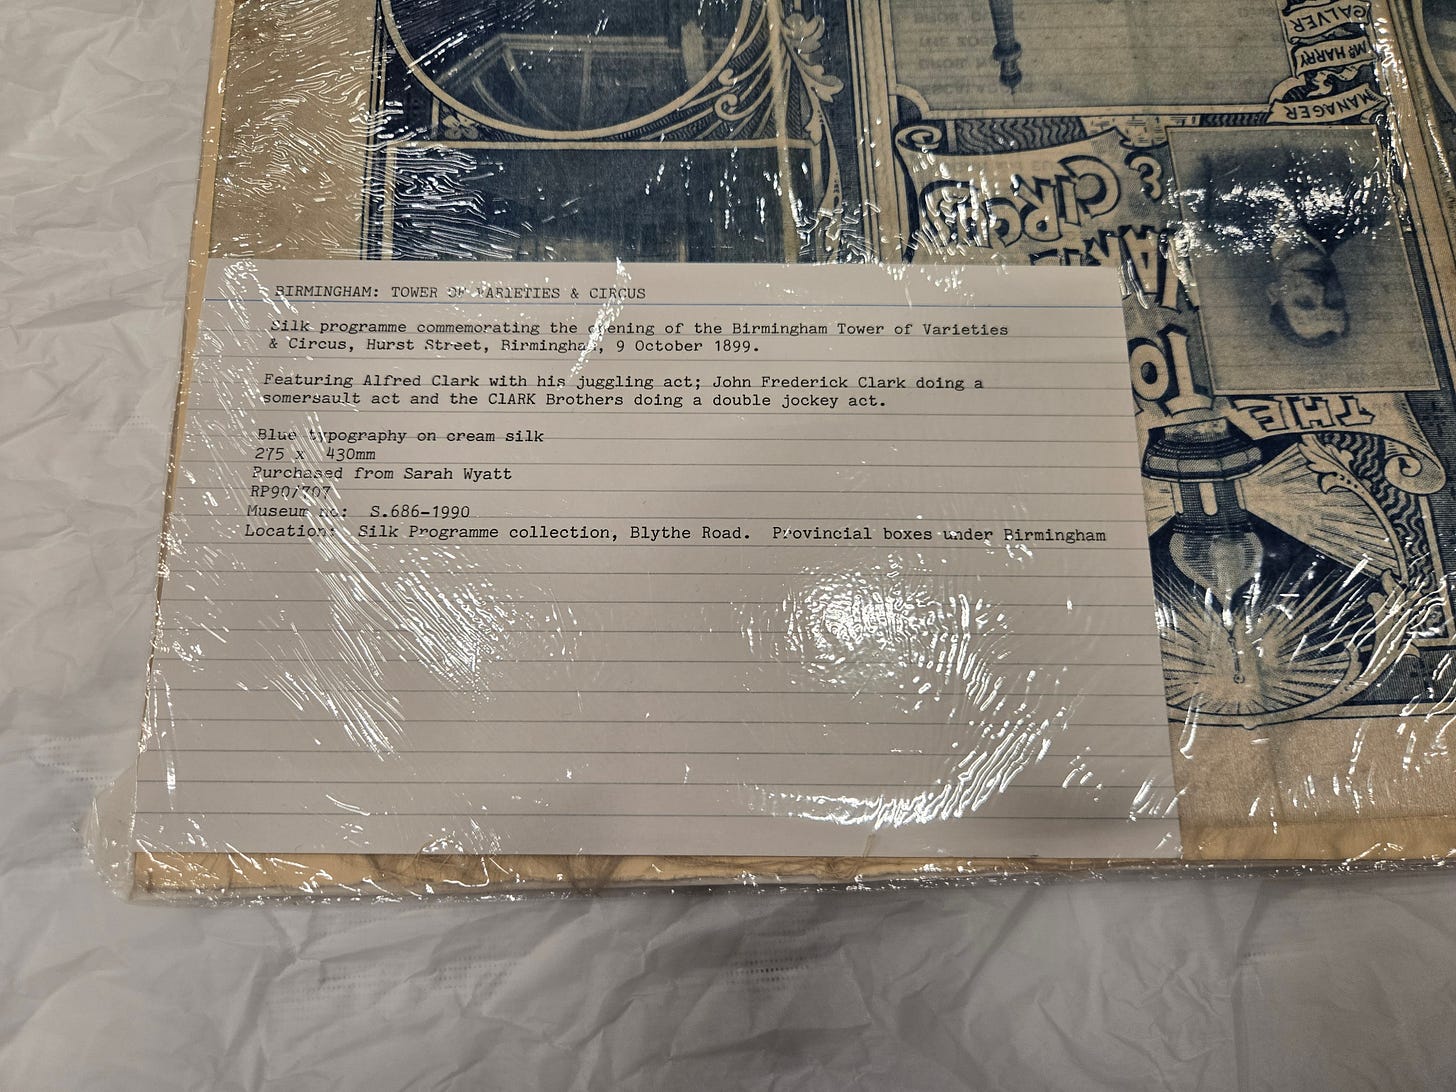 BIRMINGHAM: TOWER OF VARIETIES & CIRCUS
Silk programme commemorating the opening of the Birmingham Tower of Varieties
& Circus, Hurst Street, Birmingham, 9 October 1899.
Featuring Alfred Clark with his juggling act; John Frederick Clark doing a
somersault act and the ClARK Brothers doing a double jockey act.
Blue typography on cream silk
275 x 430mm
Purchased from Sarah Wyatt
RP90/707
Museum no: S.686-1990
Location: Silk Programme collection, Blythe Road. Provincial boxes under Birmingham
THE
& CIRCUS
MANAGER
MR HARRY
CALVER